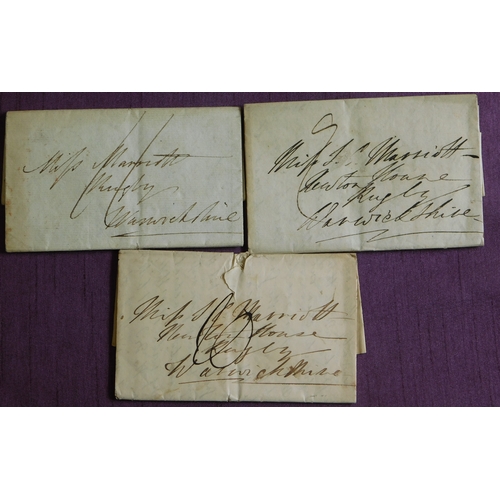 Miss Marriott
Rugby
Warwickshire
Miss S. Marriott
Newton House
Rugby
Warwickshire
Miss S Marriott
Newton House
Rugby
Warwickshire